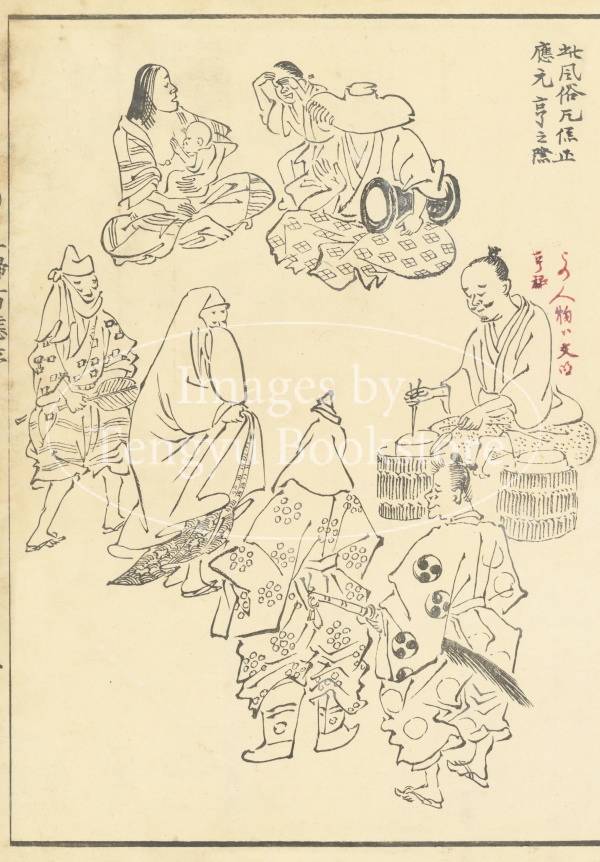 此風俗凡係正
應元亨之際
この人物ハ文明
Images by
Tengyu Bookstore